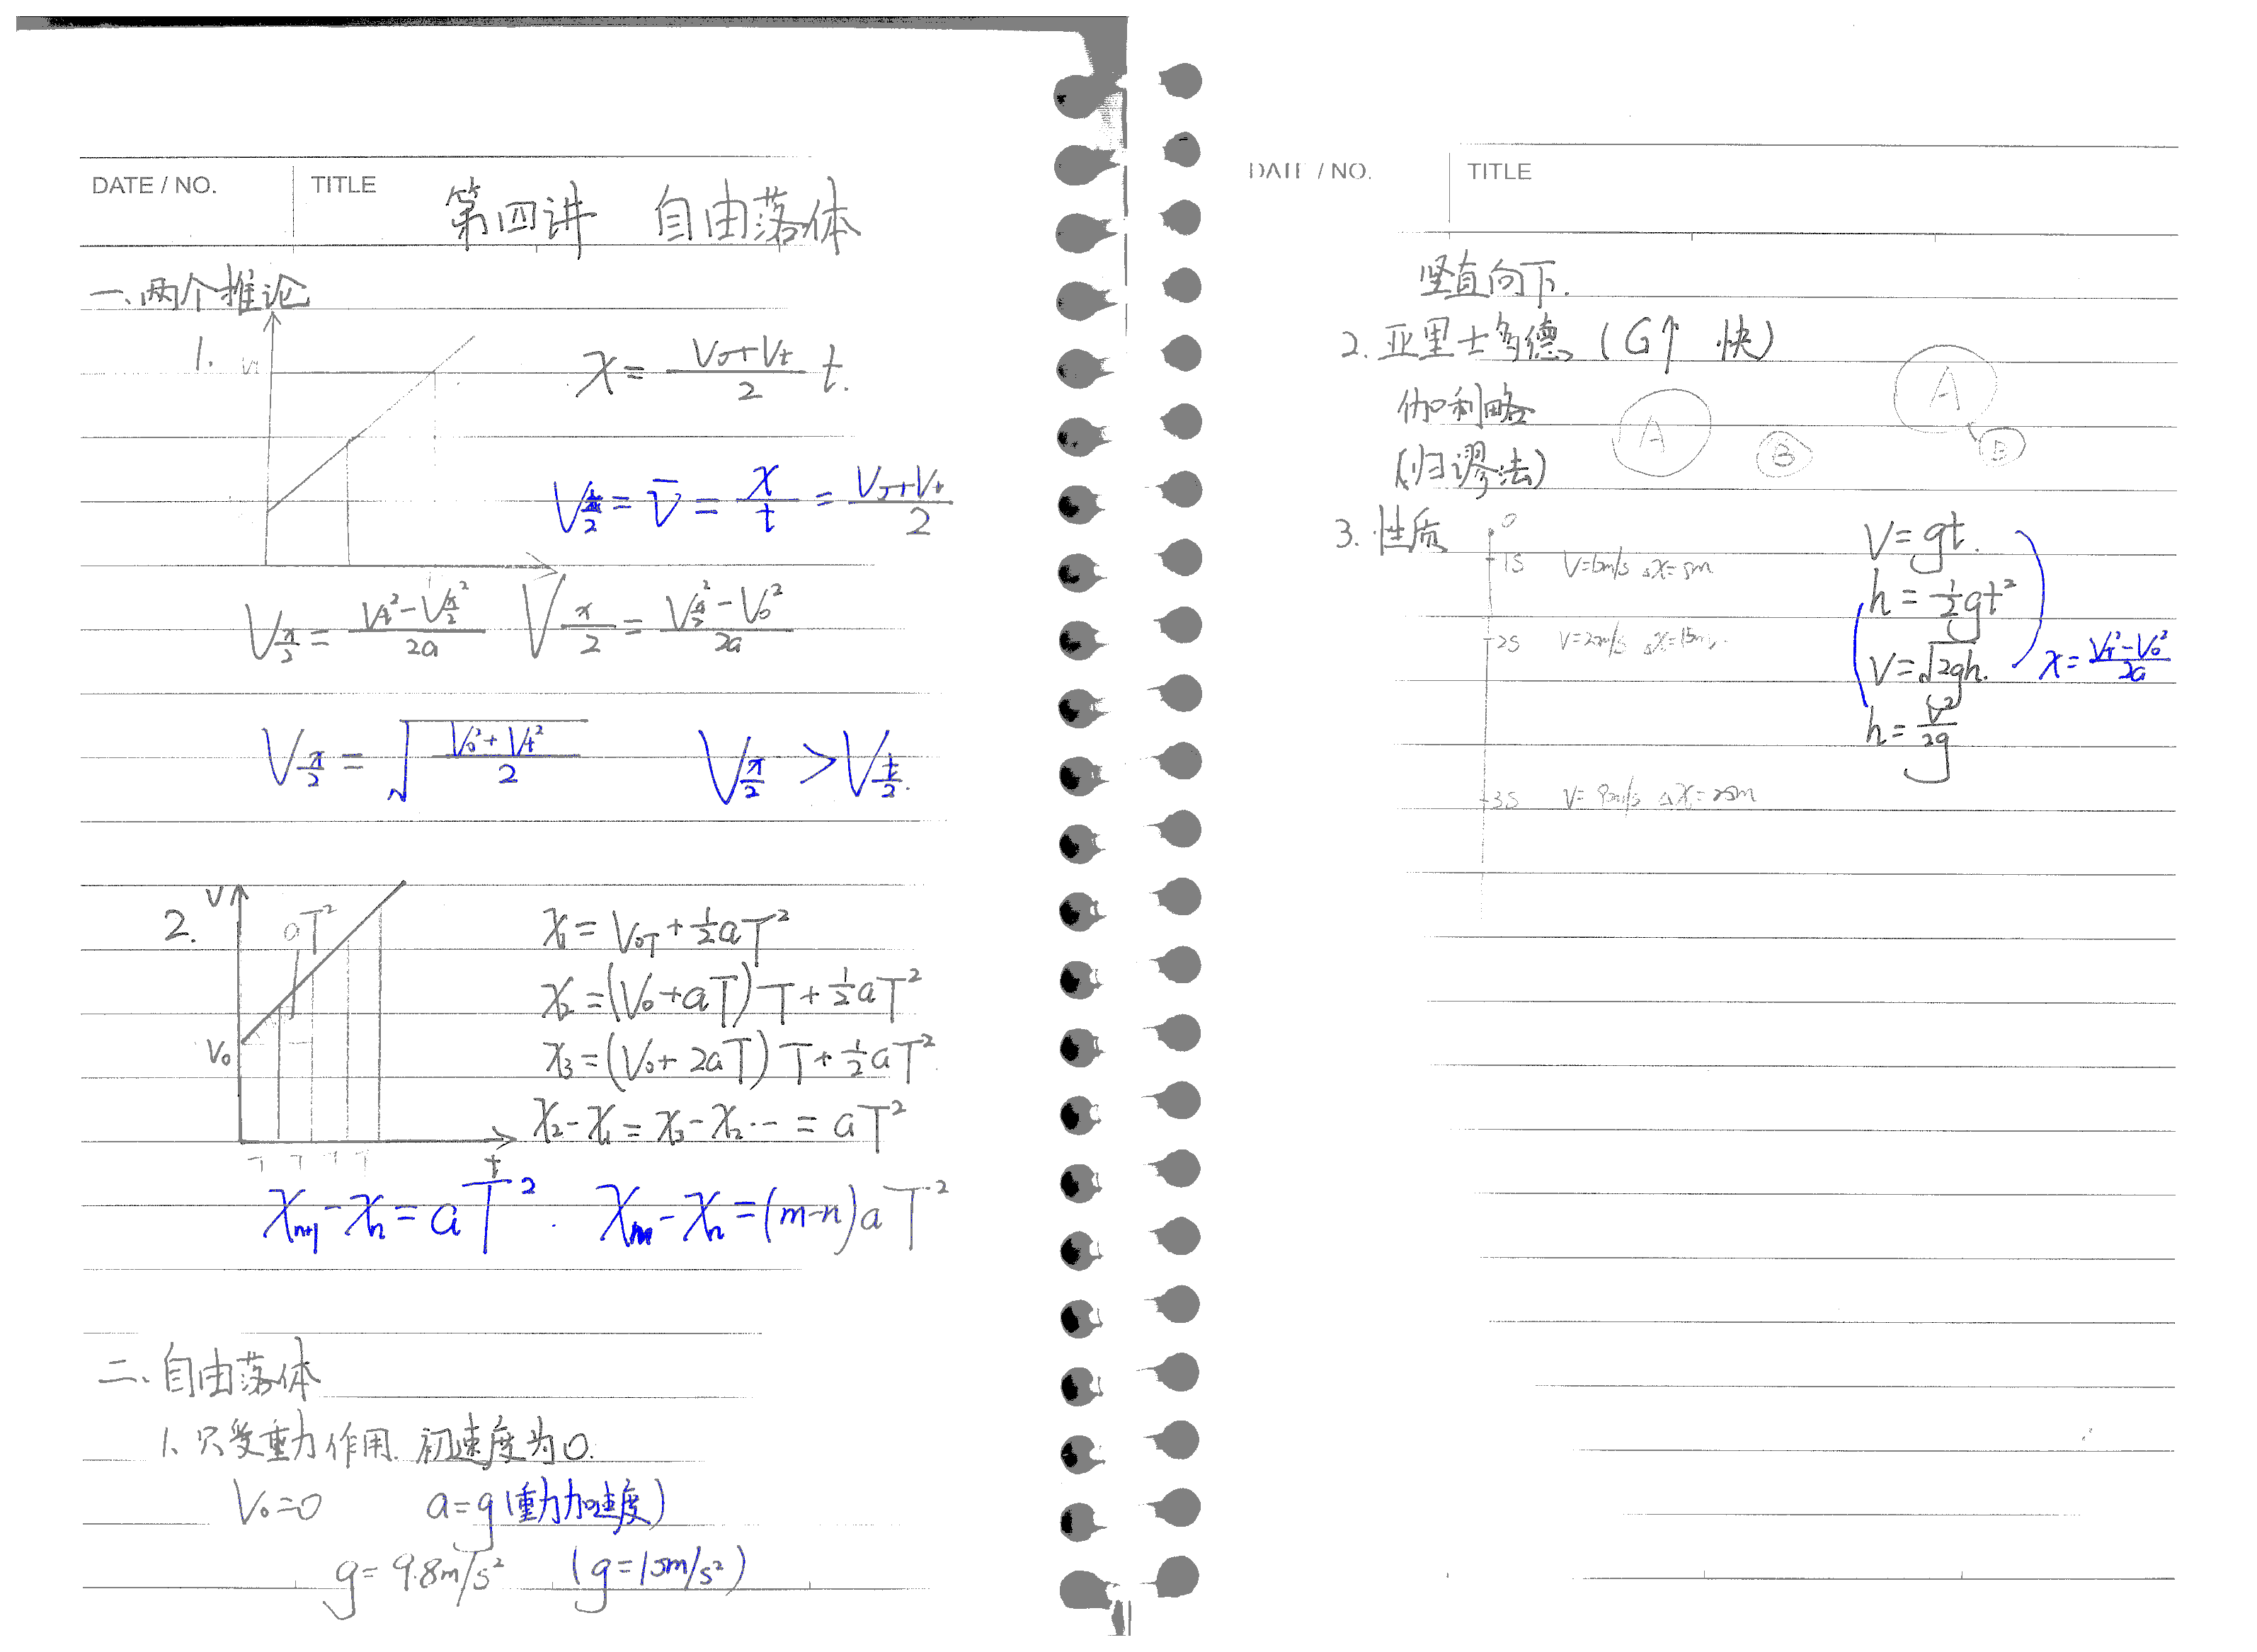 DATE / NO. TITLE 第四讲 自由落体
一、两个推论
1. x = (V₀+Vt)/2 t.
V_{t/2} = v̄ = x/t = (V₀+Vt)/2
V_{x/2} = (Vt²-V_{x/2}²)/2a V x/2 = (V_{x/2}²-V₀²)/2a
V_{x/2} = √((V₀²+Vt²)/2) V_{x/2} > V_{t/2}.
2. V aT² V₀ T T T T t
x₁ = V₀T + ½aT²
x₂ = (V₀+aT)T + ½aT²
x₃ = (V₀+2aT)T + ½aT²
x₂-x₁ = x₃-x₂ ··· = aT²
x_{n+1}-x_n = aT². x_m-x_n = (m-n)aT²
二、自由落体
1、只受重力作用. 初速度为0.
V₀=0 a=g(重力加速度)
g=9.8m/s² (g=10m/s²)
DATE / NO. TITLE
坚直向下.
2. 亚里士多德 (G↑ 快)
伽利略 A B A B
(归谬法)
3. 性质 0
1s Δx=5m
2s V=20m/s
3s Δx=25m
V=gt.
h=½gt²
V=√2gh.
h=V²/2g
x=(Vt²-V₀²)/2a